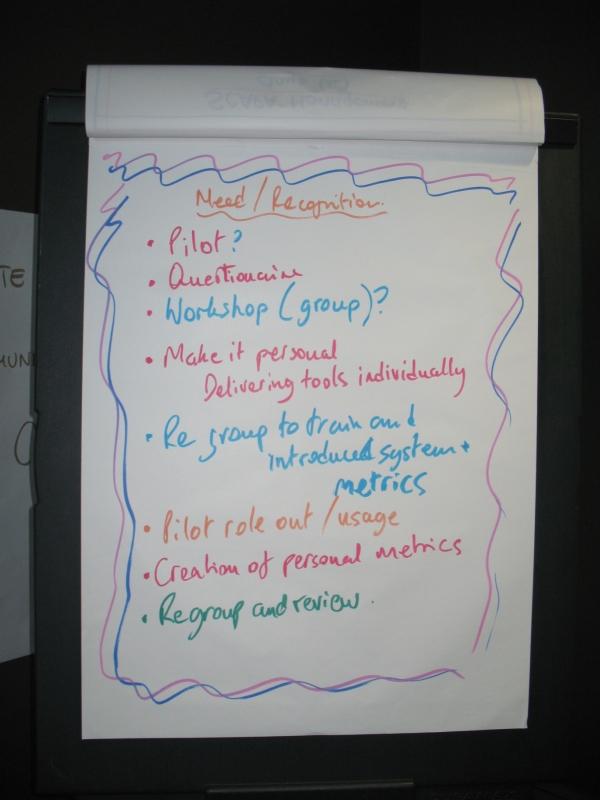 Need / Recognition
• Pilot?
• Questionaire
• Workshop (group)?
• Make it personal
Delivering tools individually
• Re group to train and
introduced system +
metrics
• Pilot role out / usage
• Creation of personal metrics
• Regroup and review.
TE
MUNI